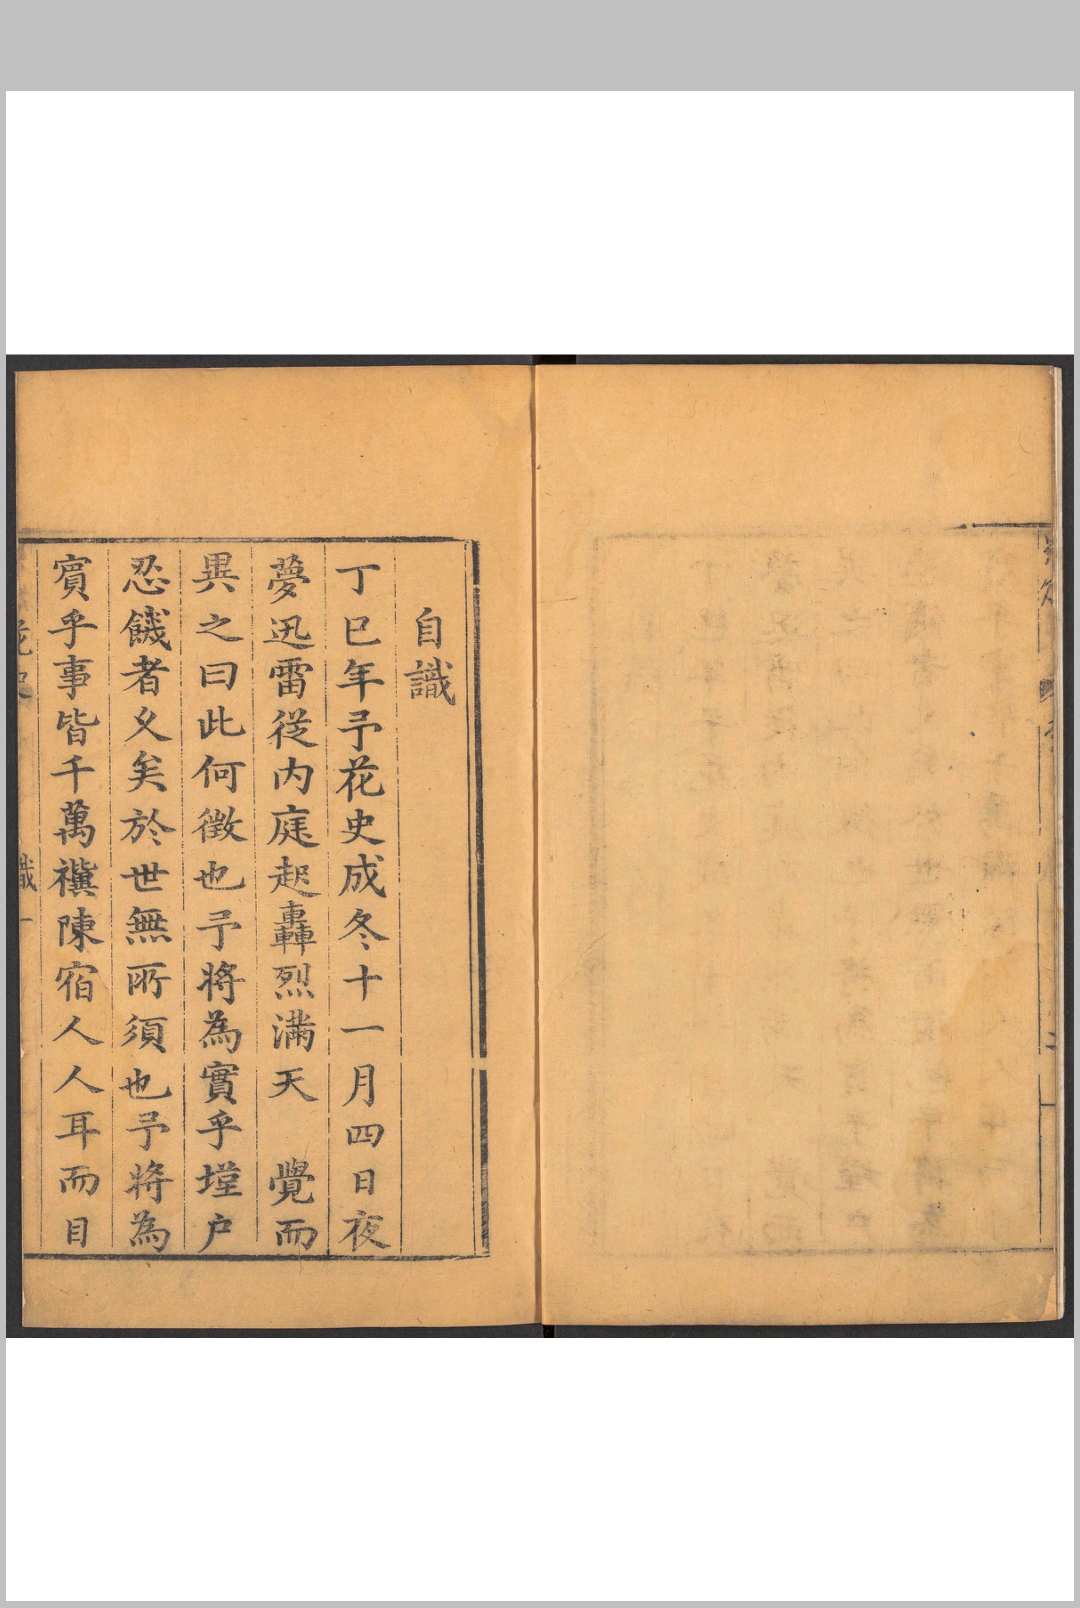 自識
丁巳年予花史成冬十一月四日夜
夢迅雷從内庭起轟烈滿天 覺而
異之曰此何徵也予將為實乎墐户
忍饑者久矣於世無所須也予將為
賓乎事皆千萬禩陳宿人人耳而目
花史 識 一